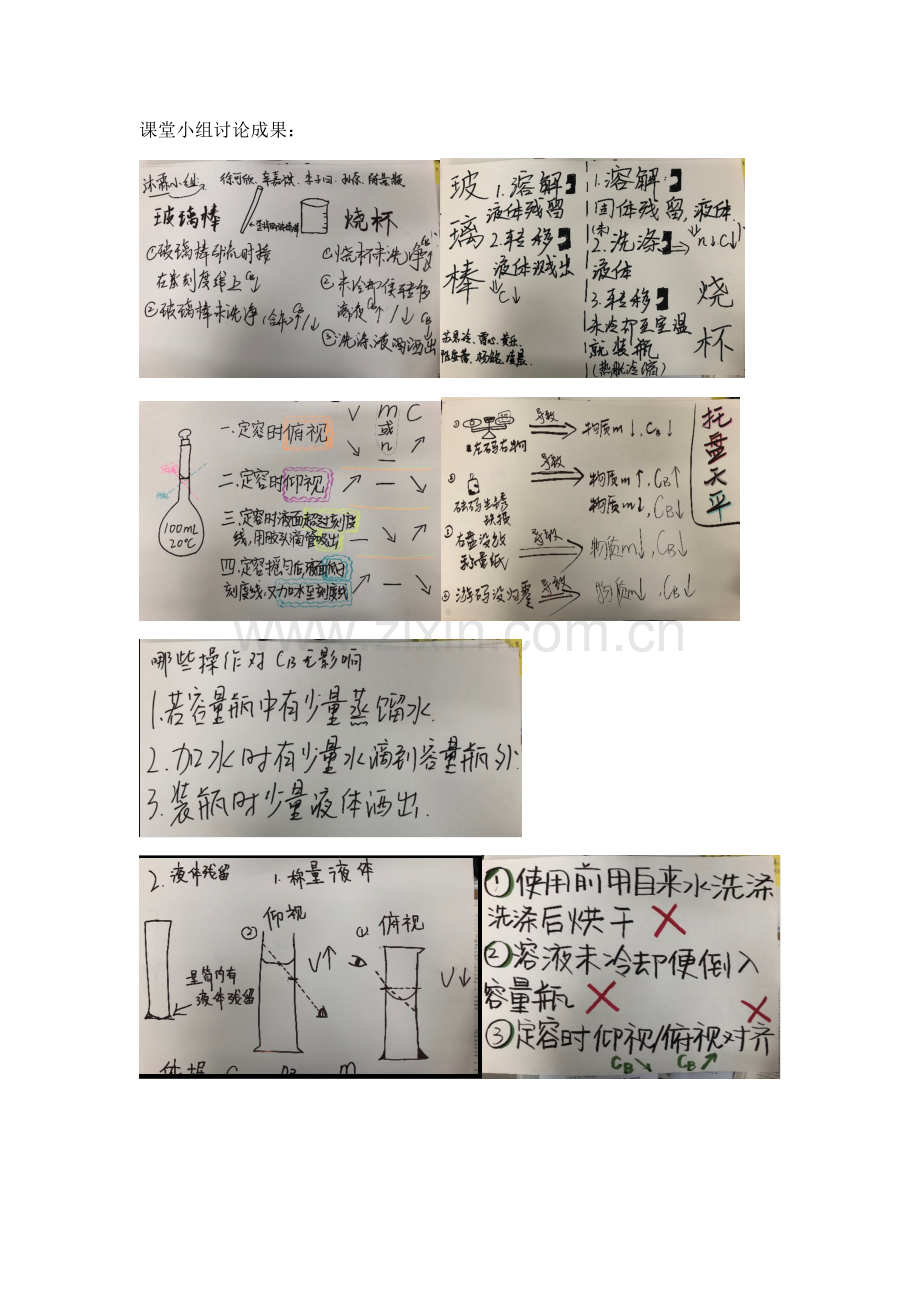 课堂小组讨论成果：
沐霖小组：
玻璃棒
烧杯
①玻璃棒引流时棒
在刻度线上
②玻璃棒未洗净
①烧杯未洗净
②未冷却便转移
溶液
③洗涤液溅洒出
玻璃棒
1.溶解
液体残留
2.转移
液体溅出
C↓
1.溶解：
固体残留，液体
2.洗涤 n↓C↓
液体
3.转移
未冷却至室温
就装瓶
(热胀冷缩)
烧杯
V m或n C
100mL
20℃
一、定容时俯视 ↘ — ↗
二、定容时仰视 ↗ — ↘
三、定容时液面超过刻度
线，用胶头滴管吸出 — ↘ ↘
四、定容摇匀后液面低于
刻度线，又加水至刻度线 ↗ — ↘
托盘天平
① 左码右物 导致 物质m↓，CB↓
② 砝码生锈 导致 物质m↑，CB↑
缺损 物质m↓，CB↓
③ 右盘没放
称量纸 导致 物质m↓，CB↓
④ 游码没归零 导致 物质m↓，CB↓
www.zixin.com.cn
哪些操作对CB无影响
1.若容量瓶中有少量蒸馏水.
2.加水时有少量水滴到容量瓶外.
3.装瓶时少量液体洒出.
2.液体残留
1.称量液体
量筒内有
液体残留
② 仰视
V↑
① 俯视
V↓
①使用前用自来水洗涤
洗涤后烘干 ×
②溶液未冷却便倒入
容量瓶 ×
③定容时仰视/俯视对齐 ×
CB↘ CB↗